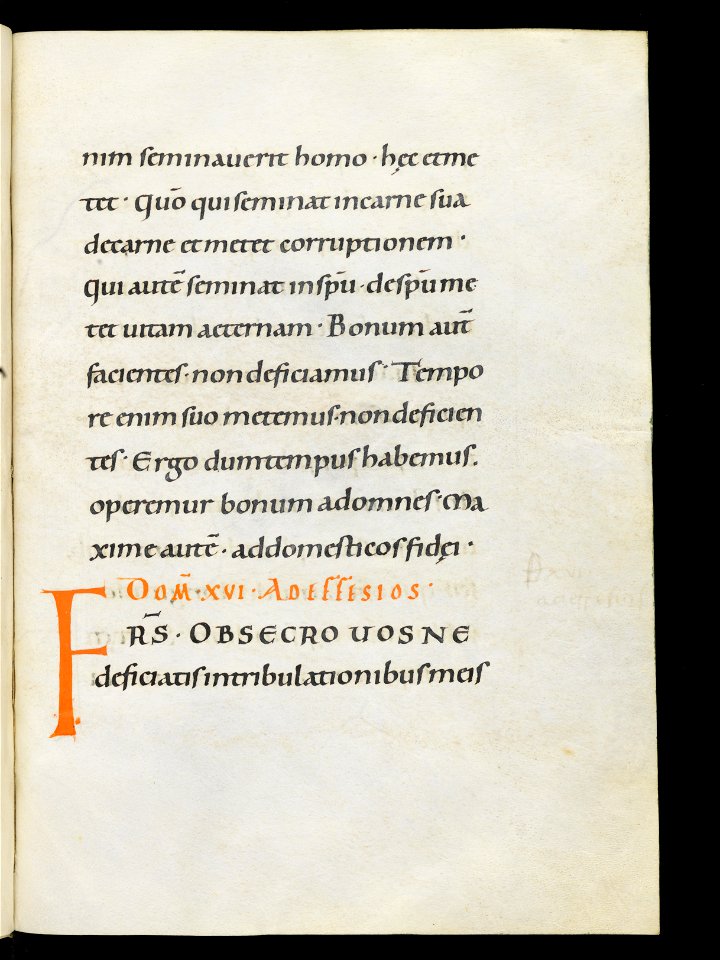 nim seminauerit homo · hęc etme
tet · Quō qui seminat incarne sua
decarne et metet corruptionem ·
Qui autē seminat in sp̄u · de sp̄u me
tet uitam aeternam · Bonum aut̄
facientes · non deficiamus · Tempo
re enim suo metemus · non deficien
tes · Ergo dum tempus habemus.
operemur bonum ad omnes · Ma
xime autē · ad domesticos fidęi ·
Dom̄ · xvi · Ad effesios ·
FRS̄ · OBSECRO UOS NE
deficiatis in tribulationibus meis
D xvi